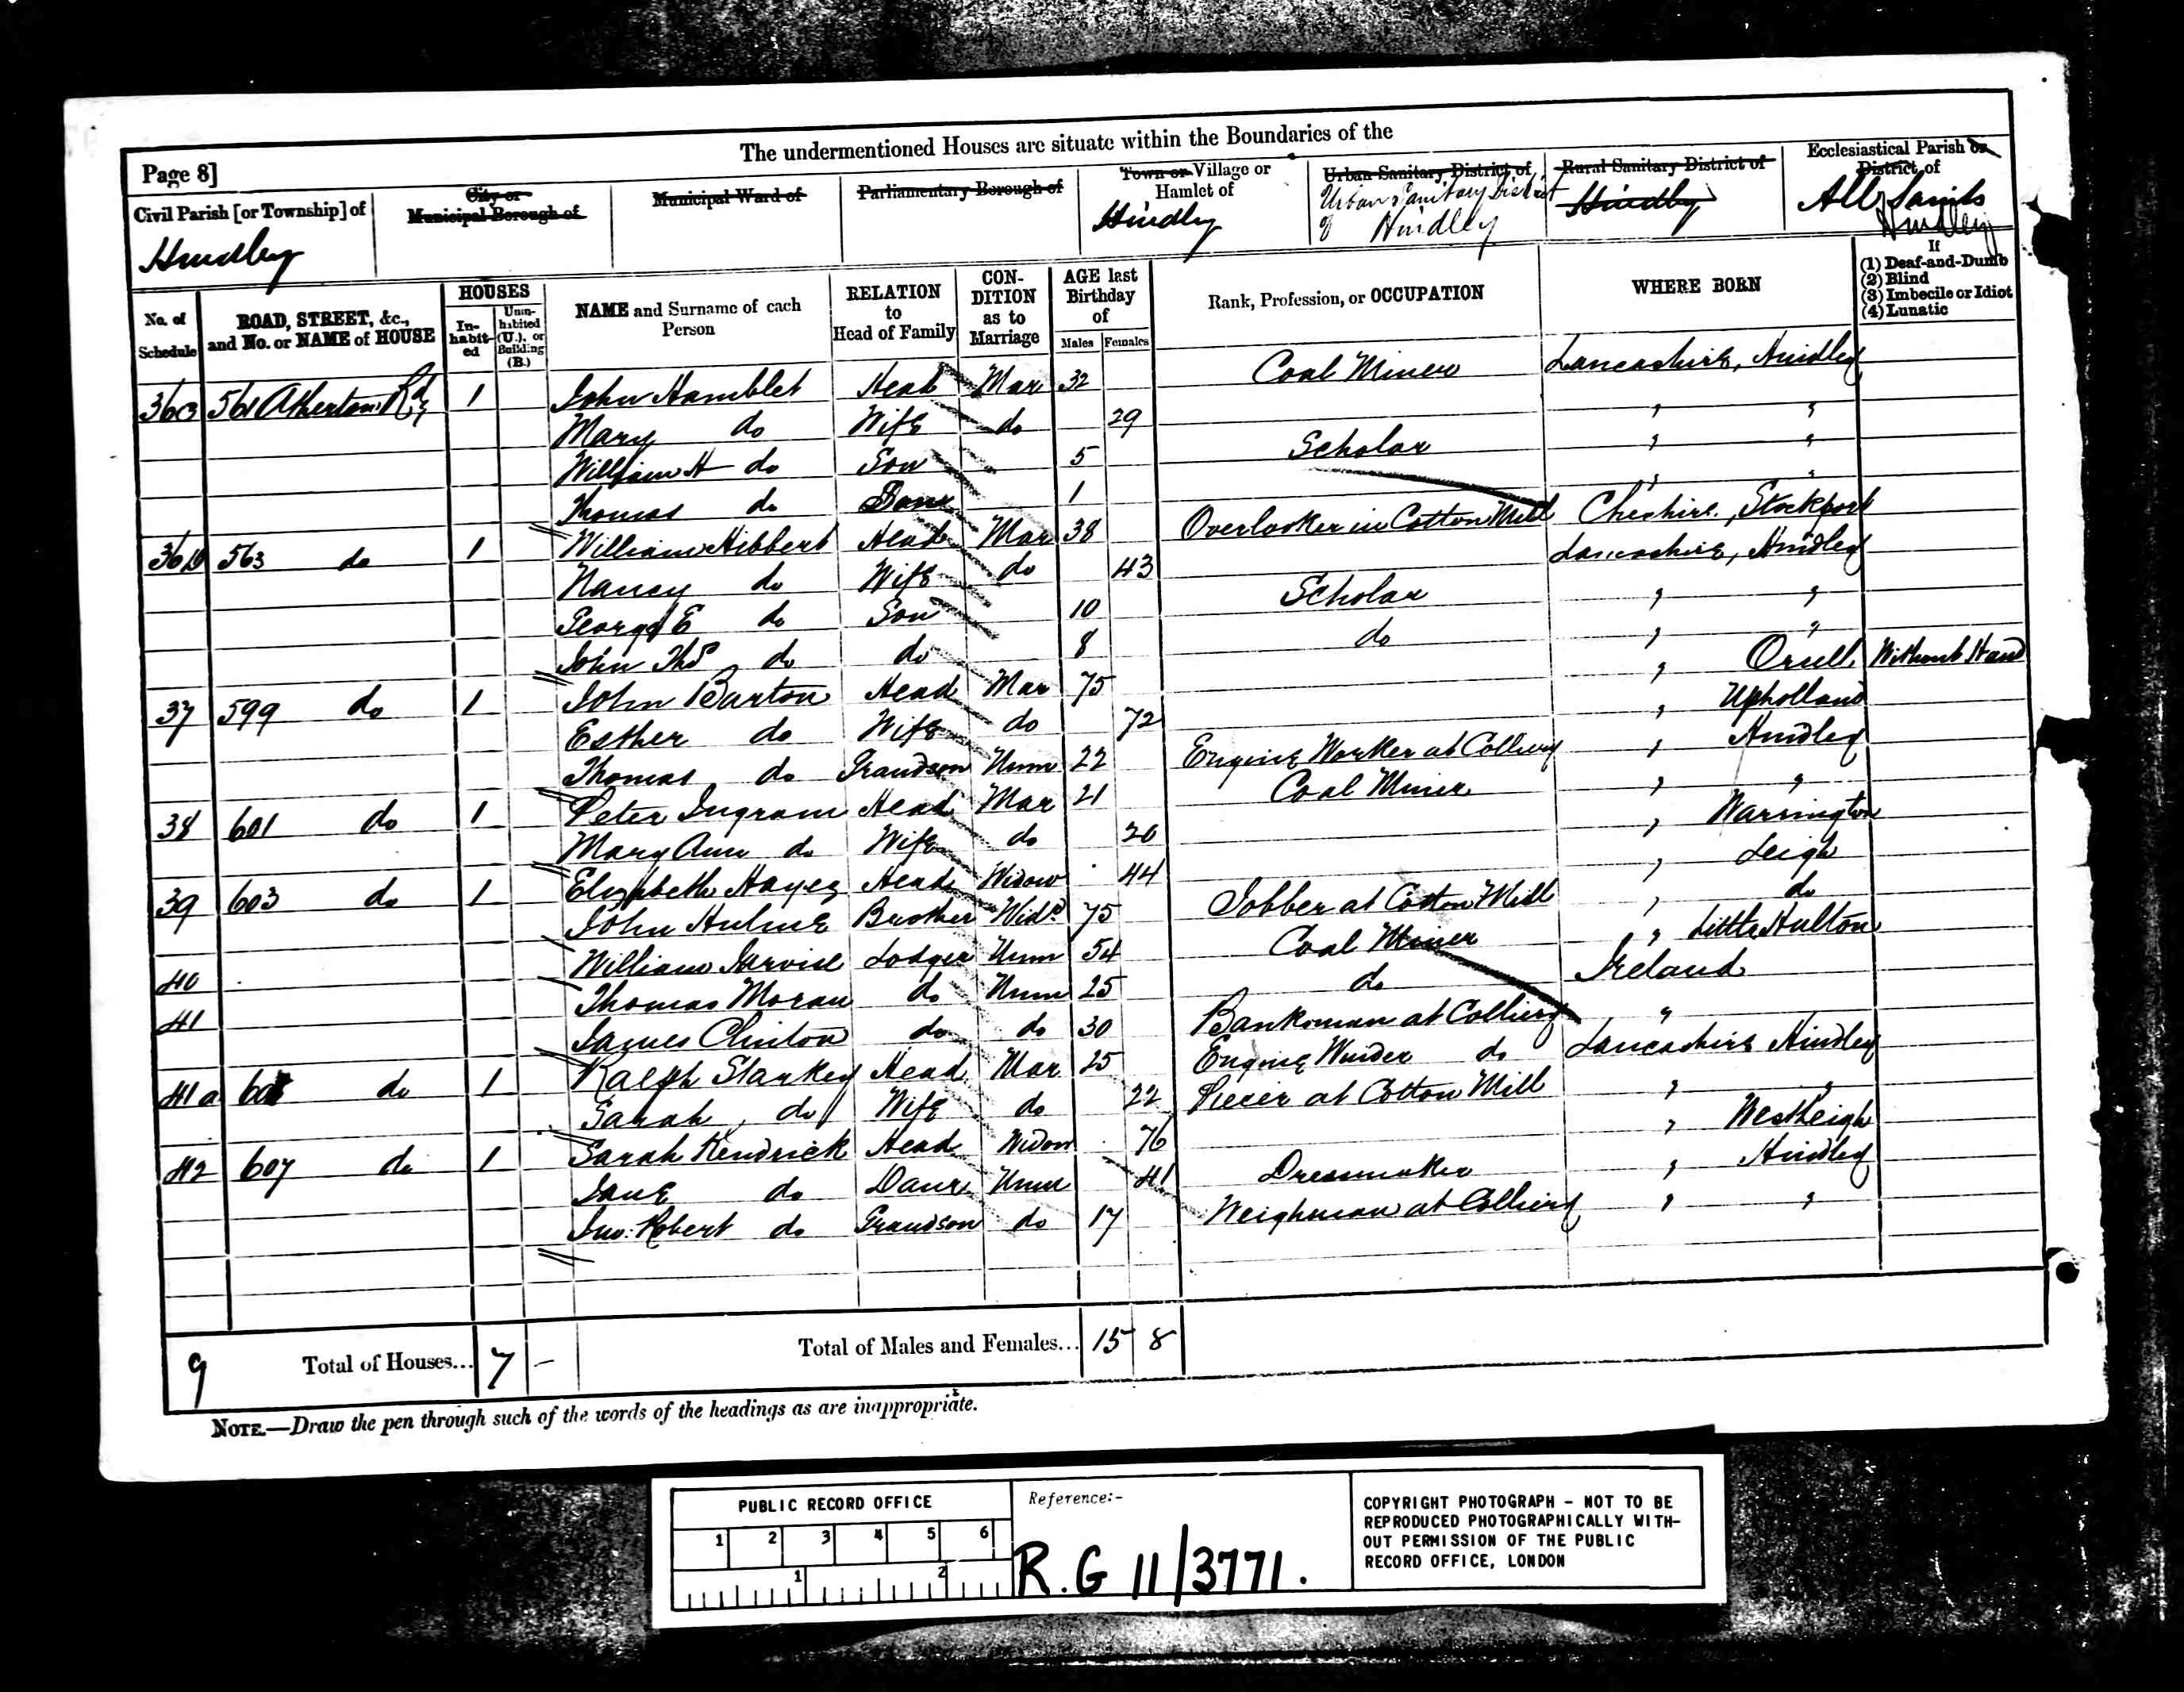 The undermentioned Houses are situate within the Boundaries of the
Page 8]
Civil Parish [or Township] of
Hindley
City or
Municipal Borough of
Municipal Ward of
Parliamentary Borough of
Town or Village or
Hamlet of
Hindley
Urban Sanitary District of
Urban Sanitary District
of Hindley
Rural Sanitary District of
Hindley
Ecclesiastical Parish or
District of
All Saints
Hindley
No. of Schedule
ROAD, STREET, &c., and No. or NAME of HOUSE
HOUSES
In-habit-ed
Unin-habited (U.), or Building (B.)
NAME and Surname of each Person
RELATION to Head of Family
CON-DITION as to Marriage
AGE last Birthday of
Males Females
Rank, Profession, or OCCUPATION
WHERE BORN
If
(1) Deaf-and-Dumb
(2) Blind
(3) Imbecile or Idiot
(4) Lunatic
561 Atherton Rd 1 John Hamblet Head Mar 32 Coal Miner Lancashire, Hindley
Mary do Wife do 29 " "
William H do Son 5 Scholar " "
Thomas do Son 1 " "
563 do 1 William Hibbert Head Mar 38 Overlooker in Cotton Mill Cheshire, Stockport
Nancy do Wife do 43 Lancashire, Hindley
George E do Son 10 Scholar " "
John Thos do do 8 do " "
37 599 do 1 John Barton Head Mar 75 " Orrell Without Hand
Esther do Wife do 72 " Upholland
Thomas do Grandson Unm 22 Engine Worker at Colliery " Hindley
38 601 do 1 Peter Ingram Head Mar 21 Coal Miner " "
Mary Ann do Wife do 20 " Warrington
39 603 do 1 Elizabeth Hayes Head Widow 44 " Leigh
John Hulme Brother Widr 75 Jobber at Cotton Mill " do
40 William Jarvise Lodger Unm 54 Coal Miner " Little Hulton
41 Thomas Moran do Unm 25 do Ireland
James Clinton do do 30 Banksman at Colliery "
41a do 1 Ralph Starkey Head Mar 25 Engine Winder do Lancashire Hindley
Sarah do Wife do 22 Piecer at Cotton Mill " "
42 607 do 1 Sarah Kendrick Head Widow 76 " Westleigh
Jane do Daur Unm 41 Dressmaker " Hindley
Jno. Robert do Grandson do 17 Weighman at Colliery " "
9 Total of Houses... 7 – Total of Males and Females... 15 8
NOTE.—Draw the pen through such of the words of the headings as are inappropriate.
PUBLIC RECORD OFFICE
1 2 3 4 5 6
1 2
Reference:-
R.G 11/3771.
COPYRIGHT PHOTOGRAPH – NOT TO BE
REPRODUCED PHOTOGRAPHICALLY WITH-
OUT PERMISSION OF THE PUBLIC
RECORD OFFICE, LONDON